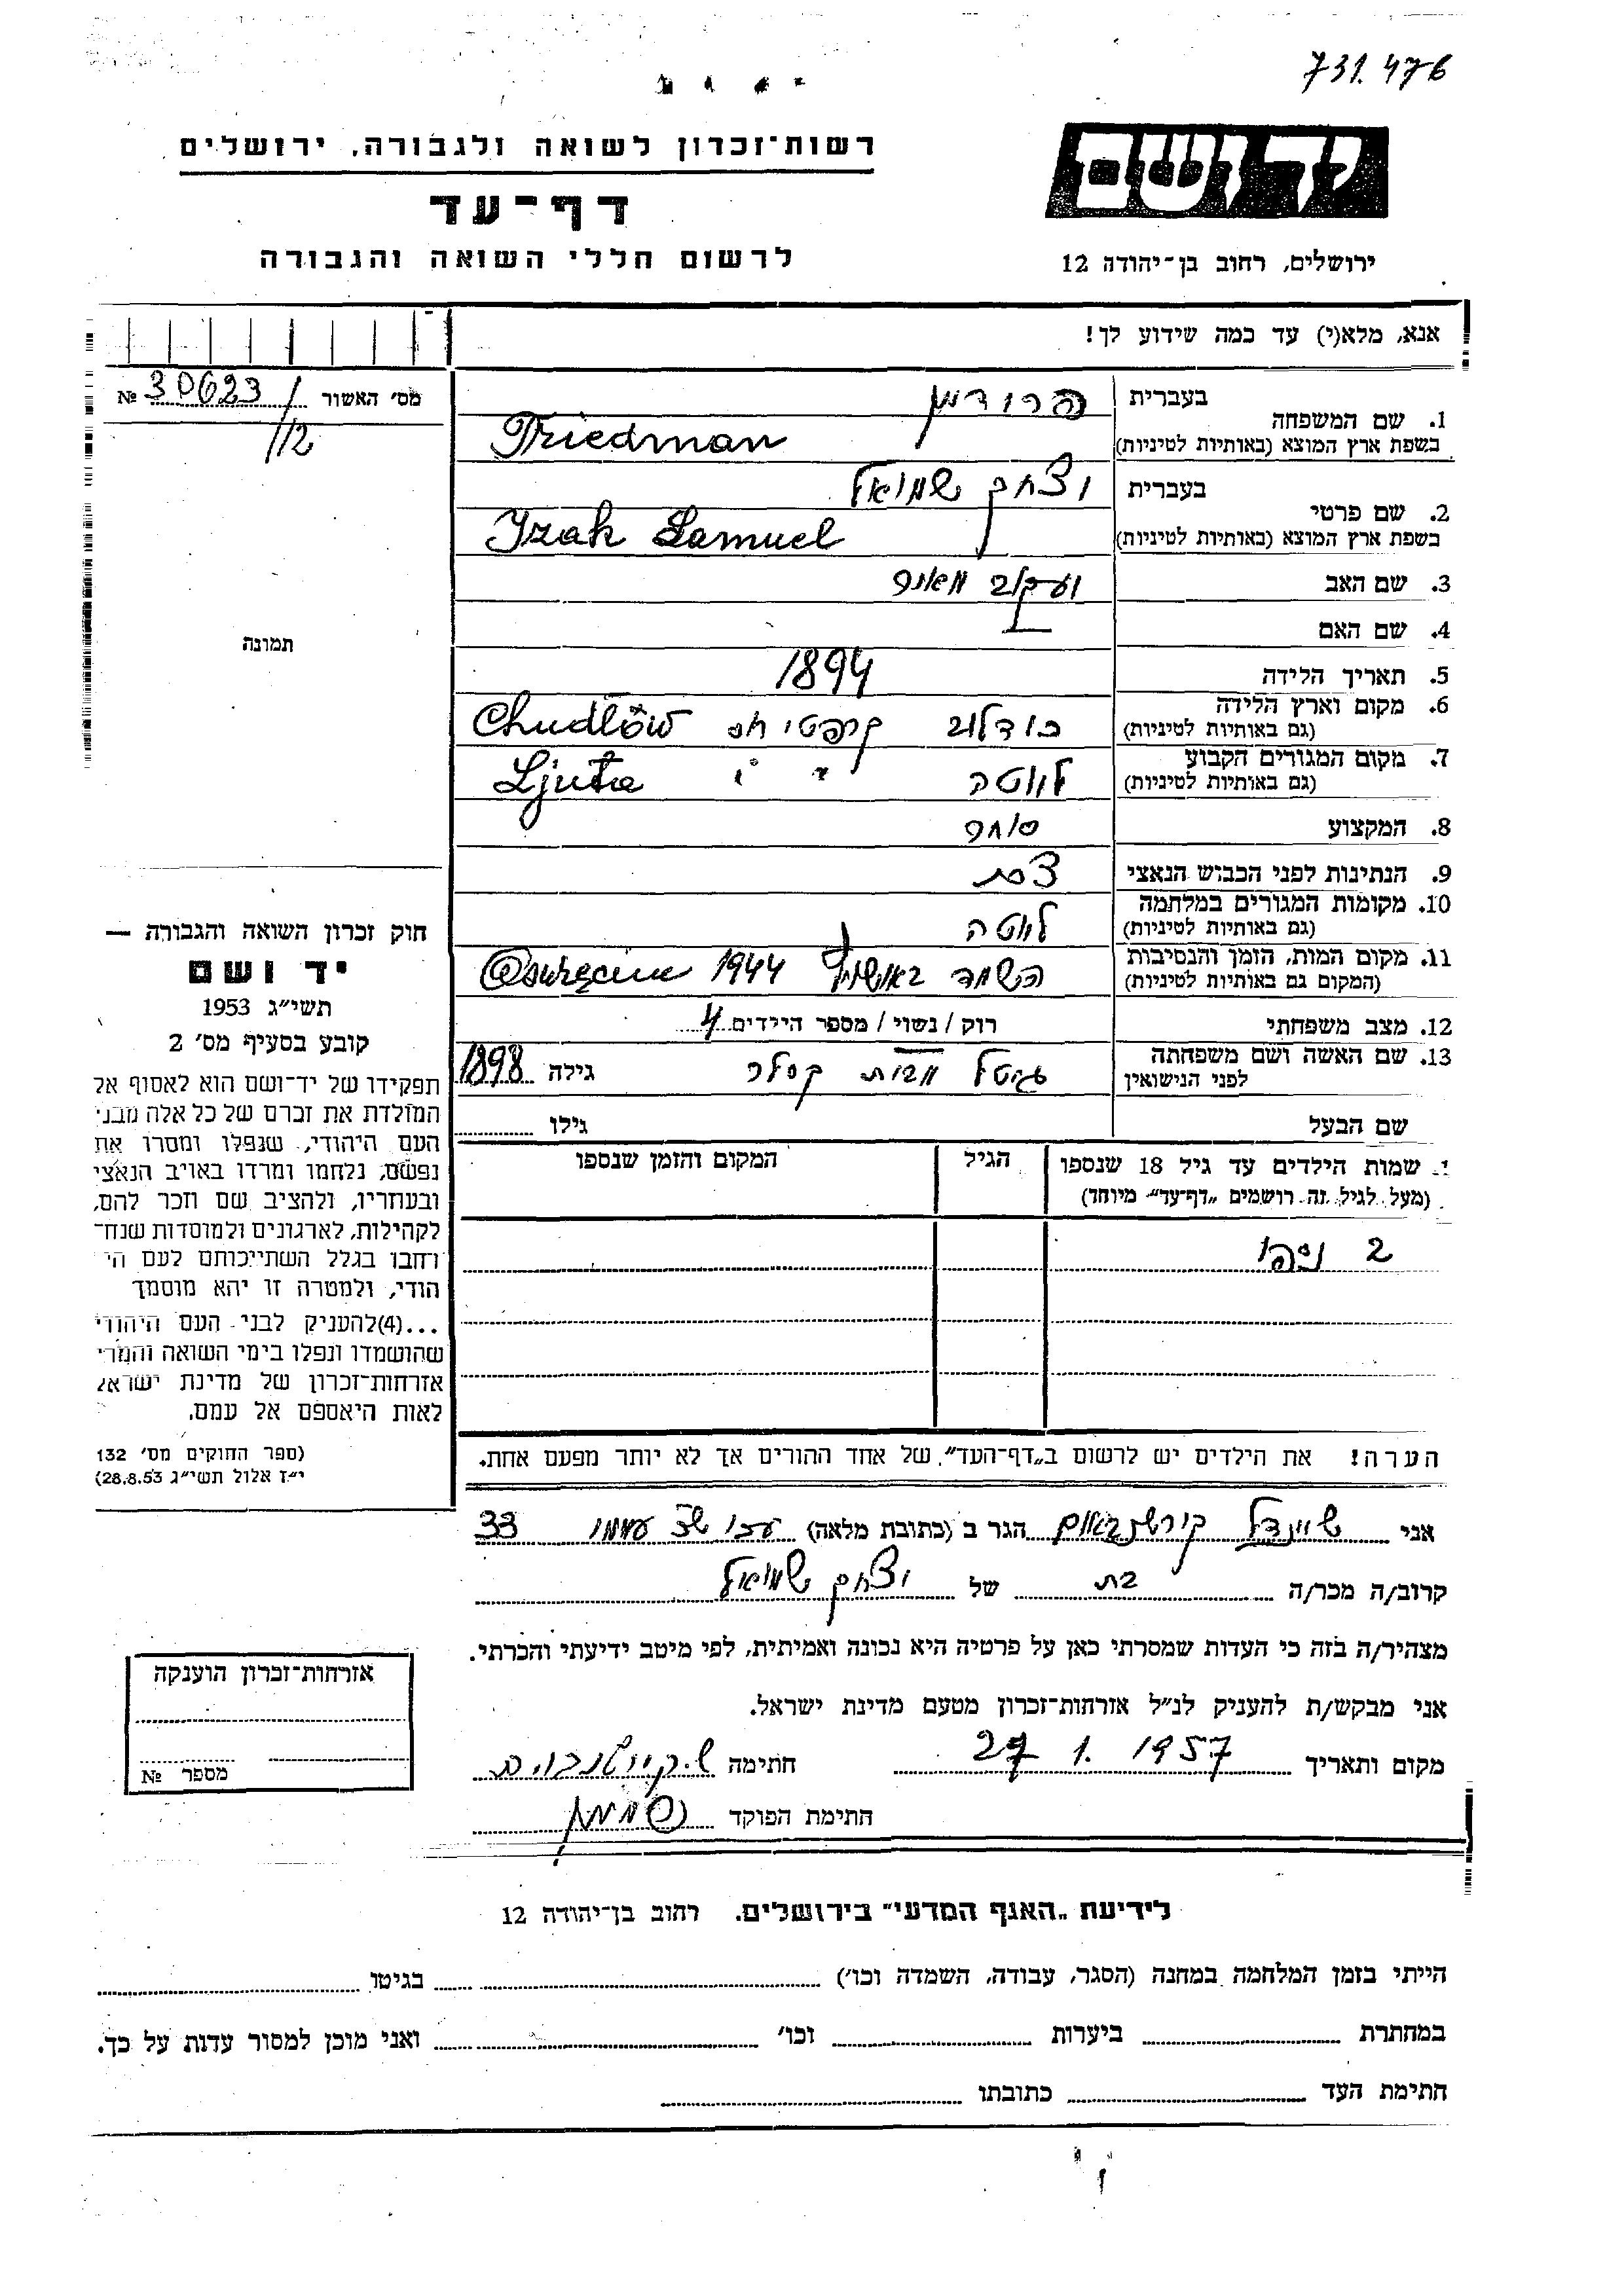 731.476
יד ושם
רשות־זכרון לשואה ולגבורה, ירושלים
דף־עד
לרשום חללי השואה והגבורה
ירושלים, רחוב בן־יהודה 12
אנא, מלא(י) עד כמה שידוע לך!
מס׳ האשור 30623 №
/112
1. שם המשפחה
בעברית פרידמן
בשפת ארץ המוצא (באותיות לטיניות) Friedman
2. שם פרטי
בעברית יצחק שמואל
בשפת ארץ המוצא (באותיות לטיניות) Izak Samuel
3. שם האב יעקב
4. שם האם —
5. תאריך הלידה 1894
6. מקום וארץ הלידה
(גם באותיות לטיניות) Chudlów
7. מקום המגורים הקבוע
(גם באותיות לטיניות) לוטה " " Ljuta
8. המקצוע סוחר
9. הנתינות לפני הכבוש הנאצי צכית
10. מקומות המגורים במלחמה
(גם באותיות לטיניות) לוטה
11. מקום המות, הזמן והנסיבות
(המקום גם באותיות לטיניות) השמד באושויץ 1944
12. מצב משפחתי רוק / נשוי / מספר הילדים 4
13. שם האשה ושם משפחתה
לפני הנישואין גיטל מבית קסלר גילה 1898
שם הבעל גילו
תמונה
שמות הילדים עד גיל 18 שנספו
(מעל לגיל זה רושמים „דף־עד״ מיוחד)
הגיל
המקום והזמן שנספו
2 ניספו
הערה! את הילדים יש לרשום ב„דף־העד״ של אחד ההורים אך לא יותר מפעם אחת.
חוק זכרון השואה והגבורה —
יד ושם
תשי״ג 1953
קובע בסעיף מס׳ 2
תפקידו של יד־ושם הוא לאסוף אל
המולדת את זכרם של כל אלה מבני
העם היהודי, שנפלו ומסרו את
נפשם, נלחמו ומרדו באויב הנאצי
ובעוזריו, ולהציב שם וזכר להם,
לקהילות, לארגונים ולמוסדות שנח־
רחבו בגלל השתייכותם לעם הי
הודי, ולמטרה זו יהא מוסמך
...(4)להעניק לבני העם היהודי
שהושמדו ונפלו בימי השואה והמרי
אזרחות־זכרון של מדינת ישראל
לאות היאספם אל עמם.
(ספר החוקים מס׳ 132
י״ז אלול תשי״ג 28.8.53)
אני שיינדל קירשנבאום הגר ב (כתובת מלאה) 33
קרוב/ה מכר/ה בת של יצחק שמואל
מצהיר/ה בזה כי העדות שמסרתי כאן על פרטיה היא נכונה ואמיתית, לפי מיטב ידיעתי והכרתי.
אני מבקש/ת להעניק לנ״ל אזרחות־זכרון מטעם מדינת ישראל.
מקום ותאריך 27 1. 1957 חתימה
חתימת הפוקד
אזרחות־זכרון הוענקה
מספר №
לידיעת „האגף המדעי״ בירושלים, רחוב בן־יהודה 12
הייתי בזמן המלחמה במחנה (הסגר, עבודה, השמדה וכו׳) בגיטו
במחתרת ביערות וכו׳ ואני מוכן למסור עדות על כך.
חתימת העד כתובתו